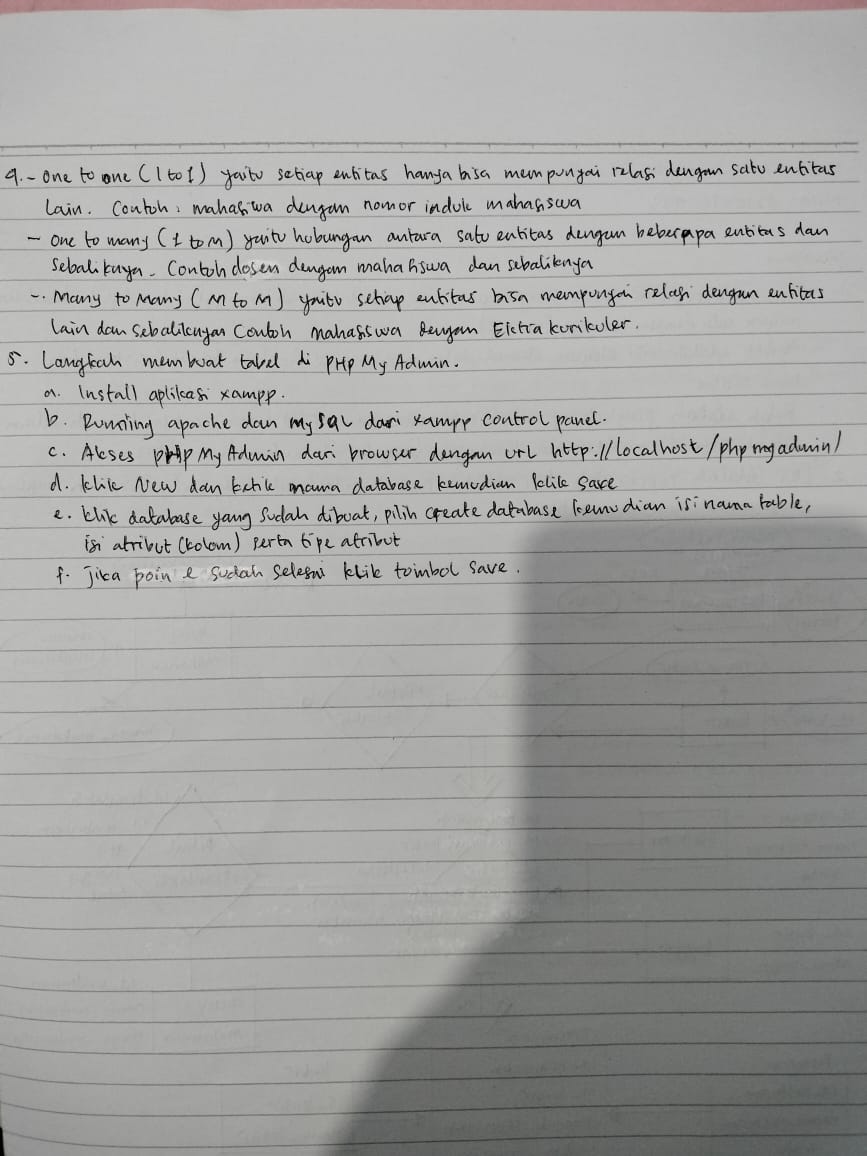 4. - One to one (1 to 1) yaitu setiap entitas hanya bisa mempunyai relasi dengan satu entitas
lain. Contoh : mahasiswa dengan nomor induk mahasiswa
- One to many (1 to M) yaitu hubungan antara satu entitas dengan beberapa entitas dan
sebaliknya. Contoh dosen dengan mahasiswa dan sebaliknya
- Many to Many (M to M) yaitu setiap entitas bisa mempunyai relasi dengan entitas
lain dan sebaliknya Contoh mahasiswa dengan Ekstra kurikuler.
5. Langkah membuat tabel di PHP My Admin.
a. Install aplikasi xampp.
b. Running apache dan my SQL dari xampp control panel.
c. Akses PHP My Admin dari browser dengan url http://localhost/phpmyadmin/
d. klik New dan ketik nama database kemudian klik save
e. klik database yang sudah dibuat, pilih create database kemudian isi nama table,
isi atribut (kolom) serta tipe atribut
f. Jika poin e sudah selesai klik tombol save.